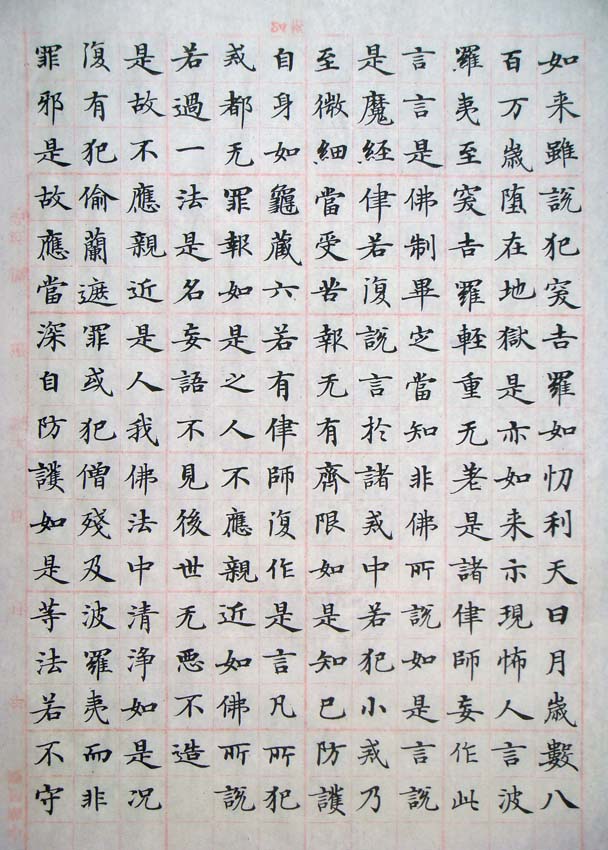 如来雖說犯突吉羅如忉利天日月歲數八
百万歲堕在地獄是亦如来示現怖人言波
羅夷至突吉羅軽重无差是諸律師妄作此
言言是佛制畢定當知非佛所說如是言說
是魔経律若復說言於諸戒中若犯小戒乃
至微細當受苦報无有齊限如是知已防護
自身如龜藏六若有律師復作是言凡所犯
戒都无罪報如是之人不應親近如佛所說
若過一法是名妄語不見後世无悪不造
是故不應親近是人我佛法中清浄如是况
復有犯偷蘭遮罪或犯僧殘及波羅夷而非
罪邪是故應當深自防護如是等法若不守